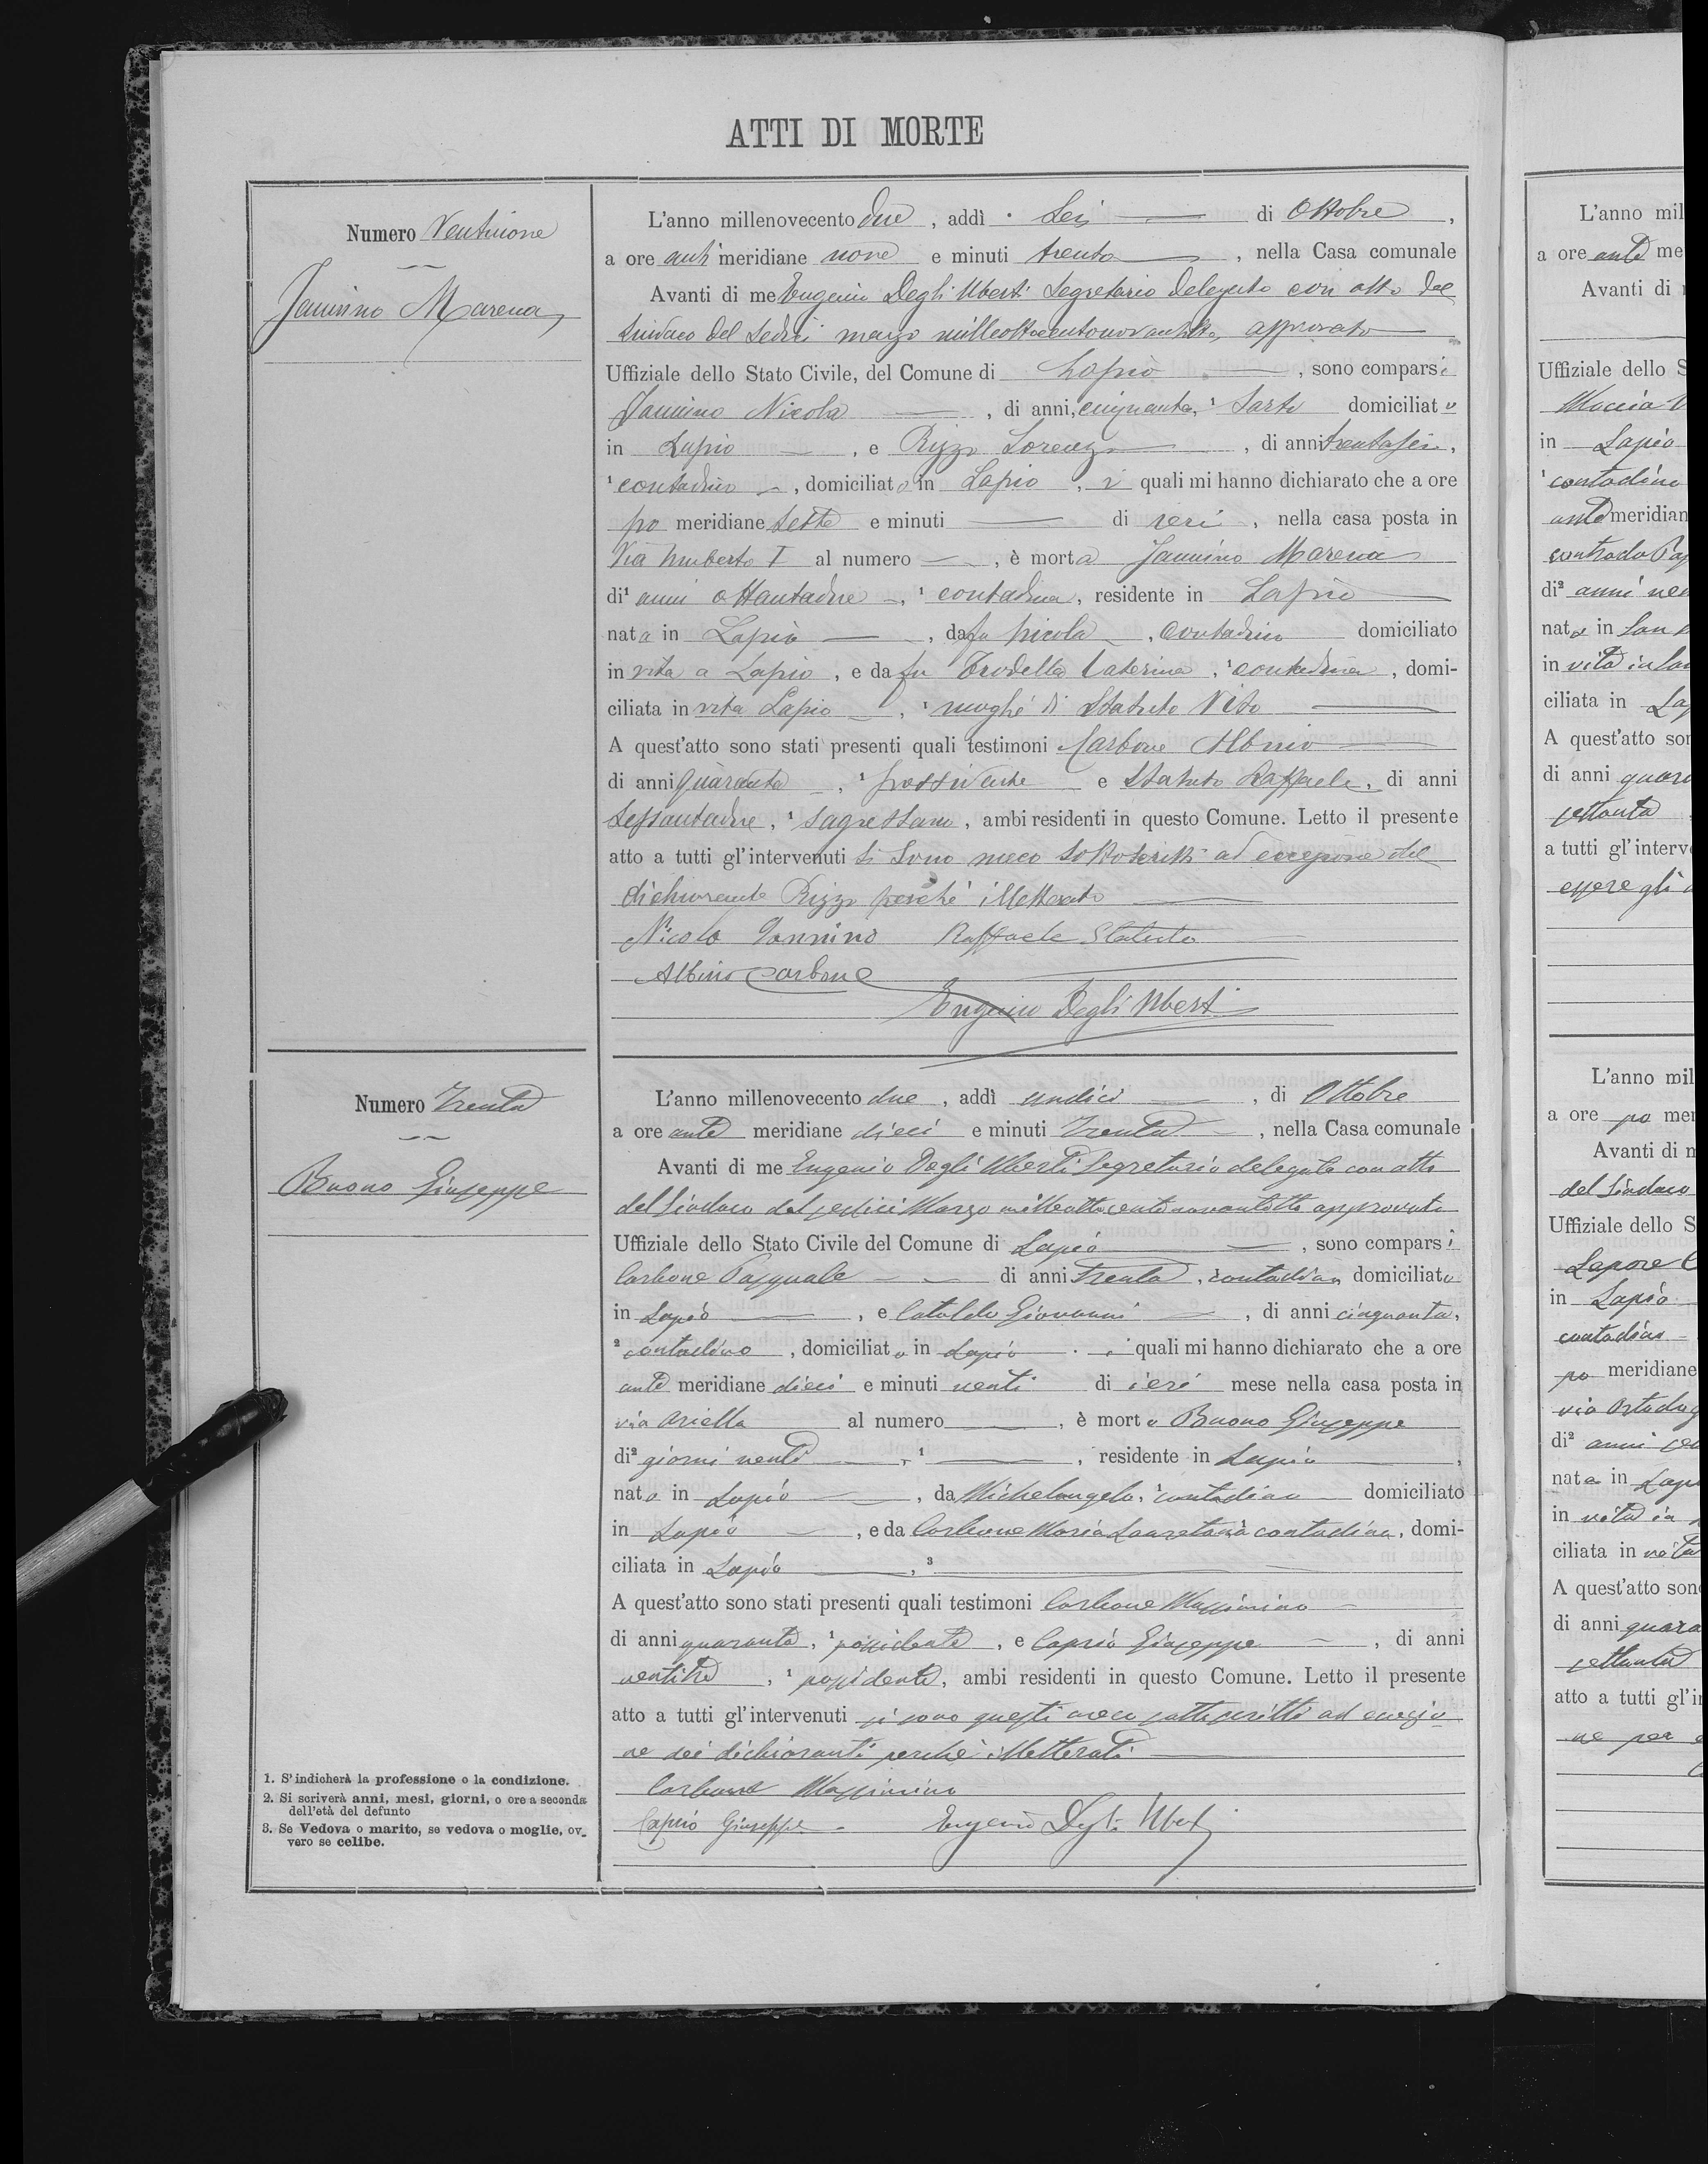 ATTI DI MORTE
Numero Ventinove
Jannino Marena
L'anno millenovecento due, addì Sei di Ottobre,
a ore anti meridiane nove e minuti trenta, nella Casa comunale
Avanti di me Eugenio Degli Uberti Segretario delegato con atto del
Sindaco del Sedici marzo milleottocentonovantotto, approvato
Uffiziale dello Stato Civile, del Comune di Lapio, sono comparsi
Jannino Nicola, di anni cinquanta, ¹ Sarto domiciliato
in Lapio, e Rizzo Lorenzo, di anni trentasei,
¹ contadino, domiciliato in Lapio, i quali mi hanno dichiarato che a ore
po meridiane sette e minuti — di ieri, nella casa posta in
Via Umberto I al numero —, è morta Jannino Marena
di¹ anni ottantadue, ¹ contadina, residente in Lapio
nata in Lapio, da fu Nicola, contadino domiciliato
in vita a Lapio, e da fu Trodella Caterina, ¹ contadina, domi-
ciliata in vita Lapio, ¹ moglie di Statuto Vito
A quest'atto sono stati presenti quali testimoni Carbone Albino
di anni quaranta, ¹ possidente e Statuto Raffaele, di anni
Sessantadue, ¹ sagrestano, ambi residenti in questo Comune. Letto il presente
atto a tutti gl'intervenuti si sono meco sottoscritti ad eccezione del
dichiarante Rizzo perchè illetterato
Nicola Jannino Raffaele Statuto
Albino Carbone
Eugenio Degli Uberti
Numero Trenta
Buono Giuseppe
L'anno millenovecento due, addì undici, di Ottobre
a ore ante meridiane dieci e minuti Trenta, nella Casa comunale
Avanti di me Eugenio Degli Uberti Segretario delegato con atto
del Sindaco del sedici Marzo milleottocentonovantotto approvato
Uffiziale dello Stato Civile del Comune di Lapio, sono comparsi
Carbone Pasquale di anni trenta, ¹ contadino domiciliato
in Lapio, e Cataldo Giovanni, di anni cinquanta,
² contadino, domiciliato in Lapio i quali mi hanno dichiarato che a ore
ante meridiane dieci e minuti venti di ieri mese nella casa posta in
via Ariella al numero —, è morto Buono Giuseppe
di² giorni venti, ¹ —, residente in Lapio,
nato in Lapio, da Michelangelo, ¹ contadino domiciliato
in Lapio, e da Carbone Maria Laureta, ¹ contadina, domi-
ciliata in Lapio, ³
A quest'atto sono stati presenti quali testimoni Carbone Massimino
di anni quaranta, ¹ possidente, e Caprio Giuseppe, di anni
ventitre, ¹ possidente, ambi residenti in questo Comune. Letto il presente
atto a tutti gl'intervenuti si sono questi meco sottoscritti ad eccezio-
ne dei dichiaranti perchè illetterati
Carbone Massimino
Caprio Giuseppe Eugenio Degli Uberti
1. S'indicherà la professione o la condizione.
2. Si scriverà anni, mesi, giorni, o ore a seconda
dell'età del defunto
3. Se Vedova o marito, se vedova o moglie, ov_
vero se celibe.
L'anno mil
a ore ante me
Avanti di
Uffiziale dello S
Moccia
in Lapio
¹ contadino
ante meridian
contrada
di² anni
nata in San
in vita in
ciliata in
A quest'atto sor
di anni
settanta
a tutti gl'interv
essere gli
L'anno mil
a ore po mer
Avanti di m
del Sindaco
Uffiziale dello S
Lapore
in Lapio
contadino
po meridiane
via
di² anni
nata in Lapi
in vita in
ciliata in vita
A quest'atto son
di anni quara
settanta
atto a tutti gl'i
ne per